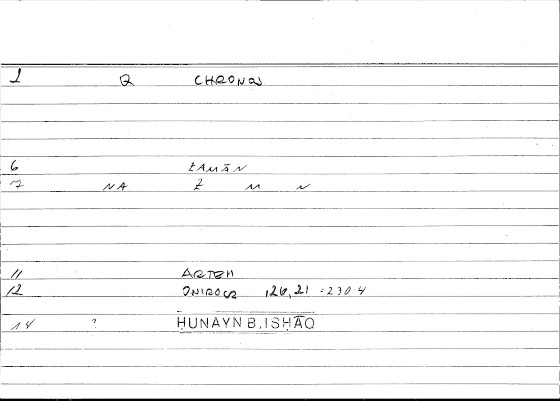 1 R CHRONOS
6 ZAMĀN
7 NA Z M N
11 ARTEM
12 ONIROCR 126,21 = 230.4
14 ? ḤUNAYN B. ISḤĀQ